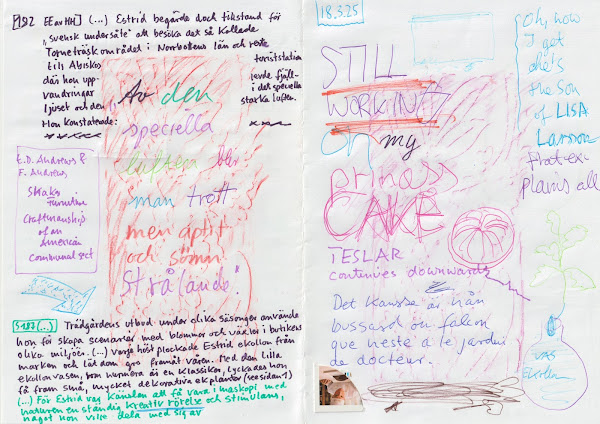 [192 EE av HH] (...) Estrid begärde dock tikstand för
"svensk undersåte" att besöka det så kallade
Torneträsk området i Norrbottens län och reste
till Abisko turiststation
där hon upp- levde fjäll-
vandringar i det speciella
ljuset och den starka luften.
Hon konstaterade:
"Av den
speciella
luften blir
man trött
men aptit
och sömn
strålande"
E.D. Andrews &
F. Andrews
Shaker
Furniture
Craftmanship
of an
American
communal sect
S187 (...) Trädgårdens utbud under olika säsonger använde
hon för skapa scenarier med blommor och växter i butikens
olika miljöer. (...) Varje höst plockade Estrid ekollon från
marken och lät den gro framåt våren. Med den lilla
ekollonvasen, som numera är en klassiker, lyckades hon
få fram små, mycket dekorativa ekplantor (se sidan 1)
(...) För Estrid var känslan att få vara i maskopi med
naturen en ständig kreativ rörelse och stimulans,
något hon ville dela med sig av
18.3.25
STILL
WORKING
on my
prinsess
CAKE
TESLAR
continues downwards
Det kanske är han
bussard ou falcon
que neste a le jardin
de docteur.
Oh, now
I get
she's
the son
of LISA
Larsson
that ex-
plains all
vas
Ekollon